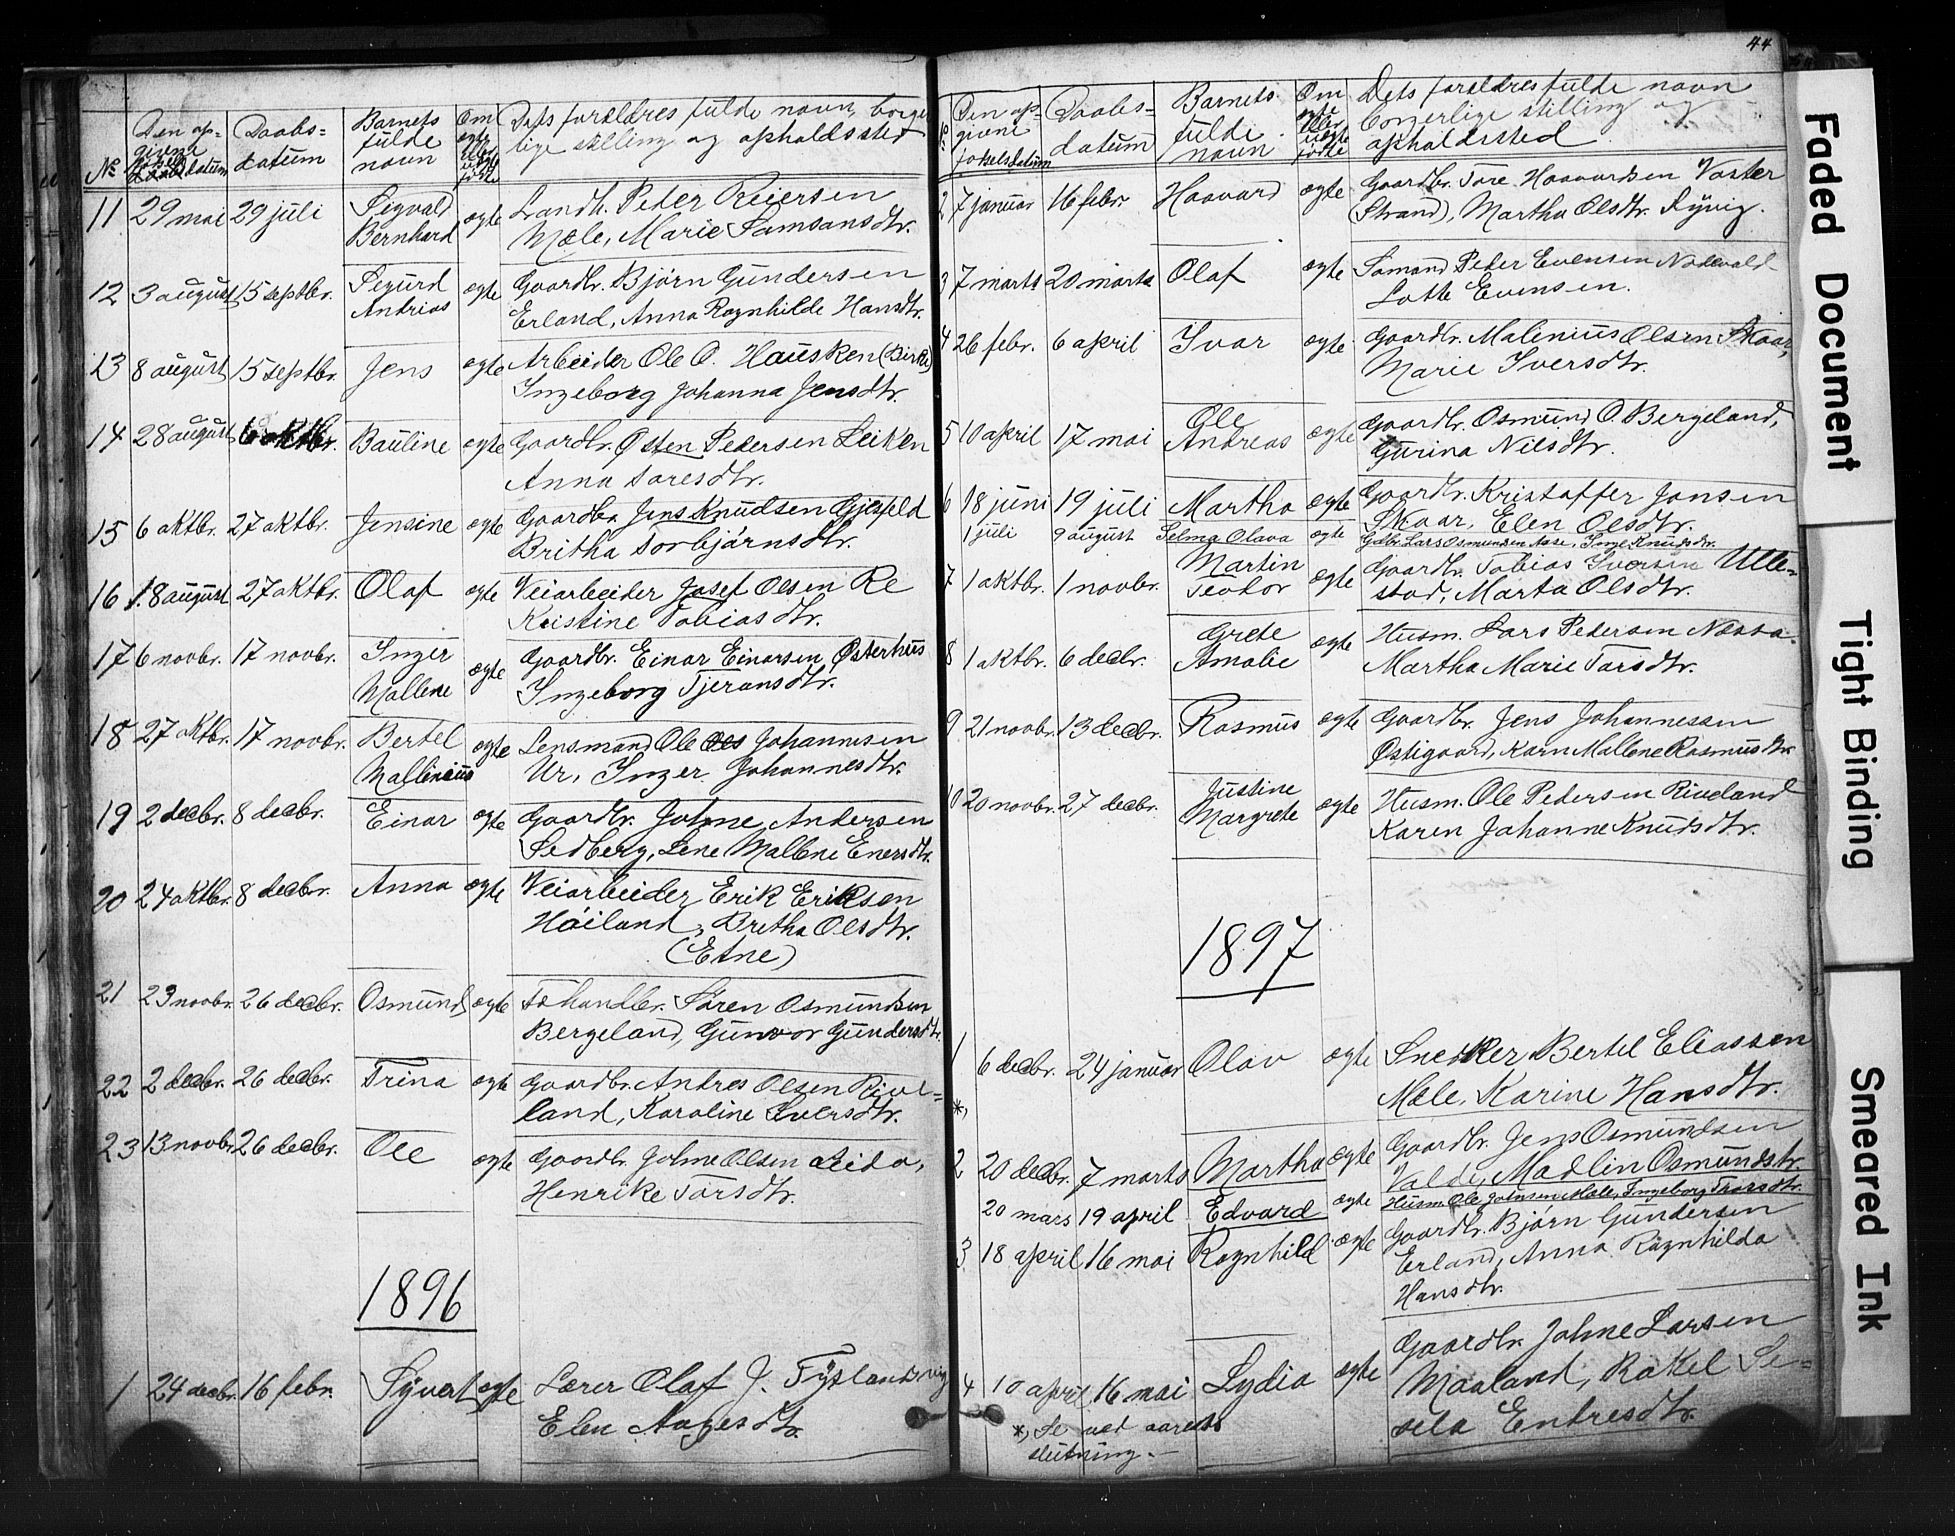 44
Den op-
givne
fødselsdatum
Daabs-
datum
Barnets
fulde
navn
Om
ægte
eller
uægte
født
Dets forældres fulde navn, borger
lige stilling og opholdssted
No
11 29 mai 29 juli Sigvald ægte Landh. Peder Reiersen
Bernhard Mæle, Marie Samsonsdtr.
12 3 august 15 septbr. Sigurd ægte Gaardbr. Bjørn Gundersen
Andreas Erland, Anna Ragnhilde Hansdtr.
13 8 august 15 septbr. Jens ægte Arbeider Ole O. Hausken (Birke)
Ingeborg Johanna Jensdtr.
14 28 august 6 oktbr. Bauline ægte Gaardbr. Østen Pedersen Leiken
Anna Toresdtr.
15 6 oktbr. 27 oktbr. Jensine ægte Gaardbr. Jens Knudsen Gjesfeld
Britha Torbjørnsdtr.
16 18 august 27 oktbr. Olaf ægte Veiarbeider Josef Olsen Re
Kristine Tobiasdtr.
17 6 novbr. 17 novbr. Inger ægte Gaardbr. Einar Einarsen Østerhus
Mallene Ingeborg Tjeransdtr.
18 27 oktbr. 17 novbr. Bertel ægte Lensmand Ole Johannesen
Mallinius Ur, Inger Johannesdtr.
19 2 decbr. 8 decbr. Einar ægte Gaardbr. Johne Andersen
Sedberg, Lene Mallene Enersdtr.
20 24 oktbr. 8 decbr. Anna ægte Veiarbeider Erik Eriksen
Høiland, Bretha Olsdtr.
(Etne)
21 23 novbr. 26 decbr. Osmund ægte Fæhandler Søren Osmundsen
Bergeland, Gunvor Gundersdtr.
22 2 decbr. 26 decbr. Trina ægte Gaardbr. Andres Olsen Rive-
land, Karoline Iversdtr.
23 13 novbr 26 decbr. Ole ægte Gaardbr. Johne Olsen Leida,
Henrike Torsdtr.
1896
1 24 decbr. 16 febr. Syvert ægte Lærer Olaf J. Fyslandsvig
Elen Aagesdtr.
No
Den op-
givne
fødselsdatum
Daabs-
datum
Barnets
fulde
navn
Om
ægte
eller
uægte
født
Dets forældres fulde navn
borgerlige stilling og
opholdssted
2 7 januar 16 febr. Haavard ægte Gaardbr. Tore Haavardsen Voster
(Strand), Martha Olsdtr. Ryvig.
3 7 marts 20 marts Olaf ægte Sømand Peder Evensen Nødevald
Lotte Evensen.
4 26 febr. 6 april Ivar ægte Gaardbr. Malenius Olsen Skaar,
Marie Iversdtr.
5 10 april 17 mai Ole ægte Gaardbr. Osmund O. Bergeland,
Andreas Gurina Nilsdtr.
6 18 juni 19 juli Martha ægte Gaardbr. Kristoffer Jonsen
Skaar, Elen Olsdtr.
1 juli 9 august Selma Olava ægte Gdbr. Lars Osmundsen Aase, Inge Knudsdtr.
7 1 oktbr. 1 novbr. Martin ægte Gaardbr. Tobias Iversen Ulle-
Teodor stad, Marta Olsdtr.
8 1 oktbr. 6 decbr. Grete ægte Husm. Lars Pedersen Næssa.
Amalie Martha Marie Torsdtr.
9 21 novbr. 13 decbr. Rasmus ægte Gaardbr. Jens Johannessen
Østigaard, Karn Mallene Rasmusdtr.
10 20 novbr. 27 decbr. Justine ægte Husm. Ole Pedersen Riveland
Margrete Karen Johanne Knudsdtr.
1897
1 6 decbr. 24 januar Olav ægte Snedker Bertel Eliassen
*) Mæle, Karine Hansdtr.
2 20 decbr. 7 marts Martha ægte Gaardbr. Jens Osmundsen
Valde, Madlin Osmundsdtr.
20 mars 19 april Edvard ægte Husm. Ole Johnsen Mæle, Ingeborg Thorsdtr.
3 18 april 16 mai Ragnhild ægte Gaardbr. Bjørn Gundersen
Erland, Anna Ragnhilda
Hansdtr.
4 10 april 16 mai Lydia ægte Gaardbr. Johne Larsen
Maaland, Rakel Se-
sela Endresdtr.
*) Se ved aarets
slutning.
Faded Document
Tight Binding
Smeared Ink